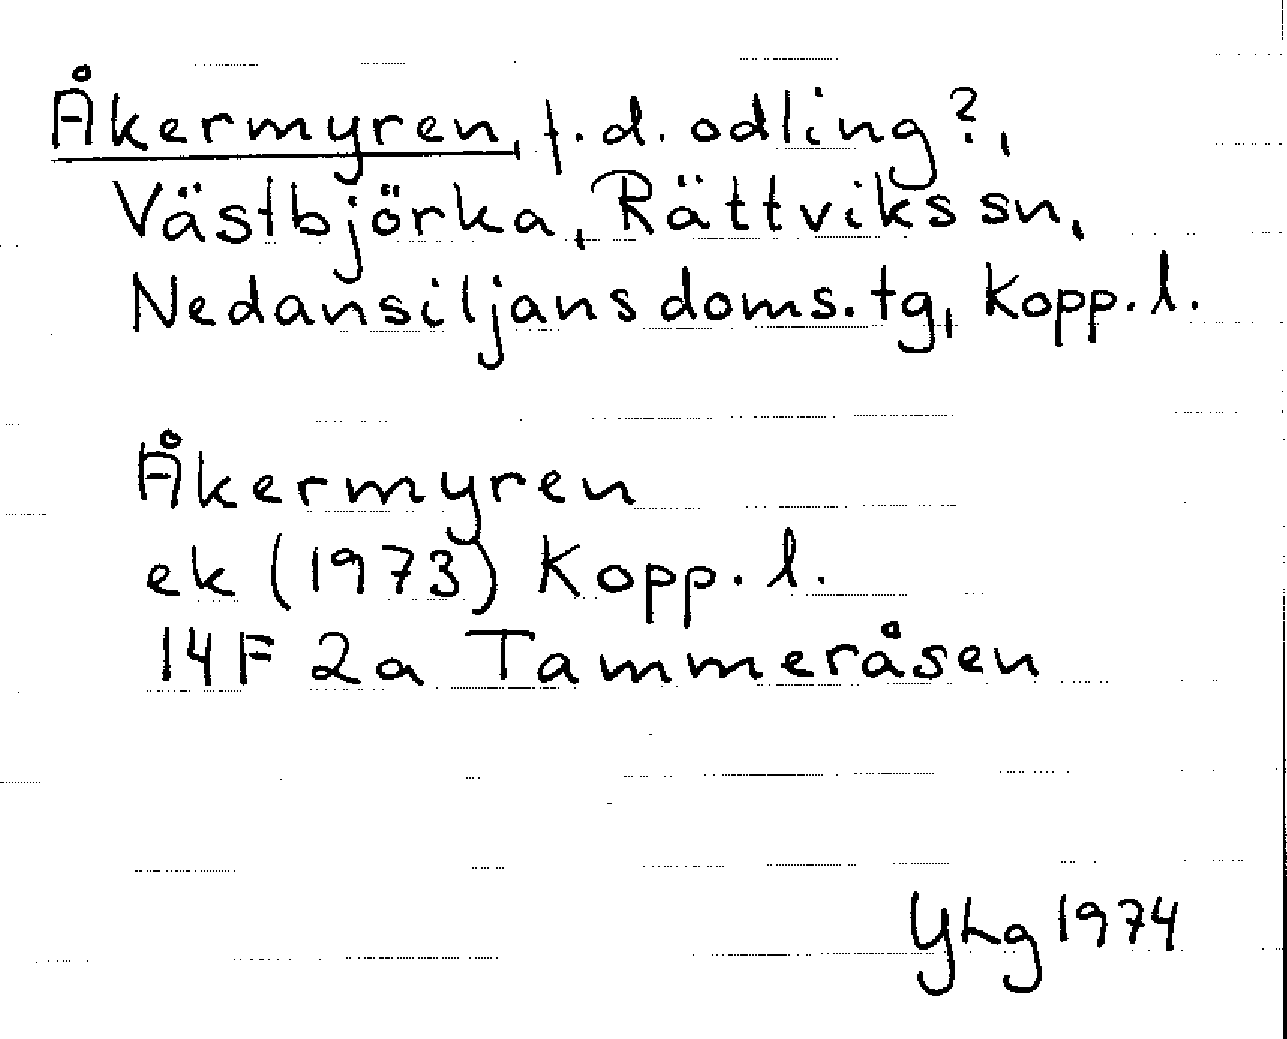 Åkermyren, f.d. odling?,
Västbjörka, Rättviks sn,
Nedansiljans doms. tg, Kopp. l.
Åkermyren
ek (1973) Kopp. l.
14F 2a Tammeråsen
YLg 1974